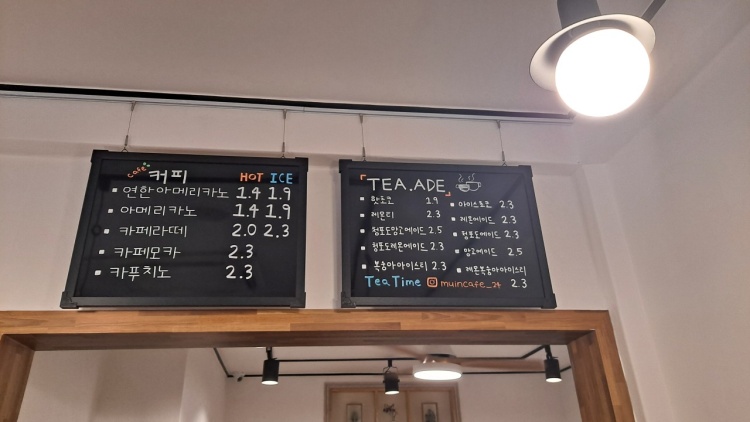 cafe 커피 HOT ICE
연한아메리카노 1.4 1.9
아메리카노 1.4 1.9
카페라떼 2.0 2.3
카페모카 2.3
카푸치노 2.3
「TEA.ADE」
핫초코 1.9
레몬티 2.3
청포도망고에이드 2.5
청포도레몬에이드 2.3
복숭아아이스티 2.3
아이스초코 2.3
레몬에이드 2.3
청포도에이드 2.3
망고에이드 2.5
레몬복숭아아이스티 2.3
Tea Time muincafe_24